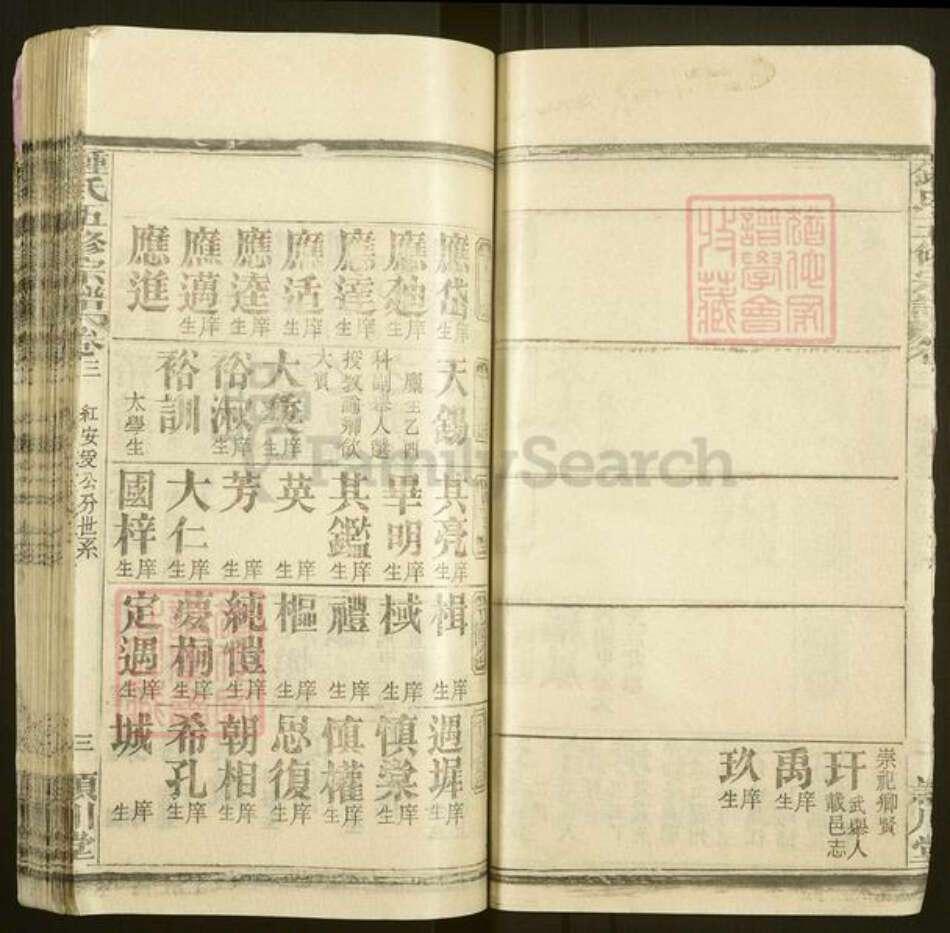 崇祀鄉賢
玕 武舉人 載邑志
禹 庠生
玖 庠生
鍾氏五修宗譜 卷三
紅安愛公分世系
三
潁川堂
應岱 庠生
應 庠生
應達 庠生
應活 庠生
應逵 庠生
應邁 庠生
應進
天錫
廩生乙酉
科副舉人選
授教諭鄉飲
大賓
大 庠生
俗淑 庠生
裕訓
太學生
其亮 庠生
畢明 庠生
其鑑 庠生
英 庠生
芳 庠生
大仁 庠生
國梓 庠生
楫 庠生
棫 庠生
禮 庠生
樞 庠生
純愷 庠生
夢桐 庠生
定遇 庠生
遇墀 庠生
慎棠 庠生
慎權 庠生
思復 庠生
朝相 庠生
希孔 庠生
城 庠生
FamilySearch